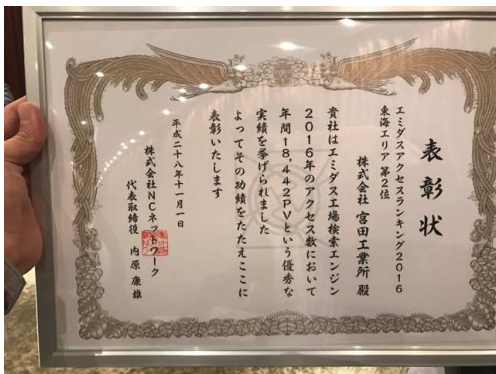 表彰状
エミダスアクセスランキング2016
東海エリア 第2位
株式会社 宮田工業所 殿
貴社はエミダス工場検索エンジン
2016年のアクセス数において
年間18,442PVという優秀な
実績を挙げられました
よってその功績をたたえここに
表彰いたします
平成二十八年十一月一日
株式会社NCネットワーク
代表取締役 内原 康雄